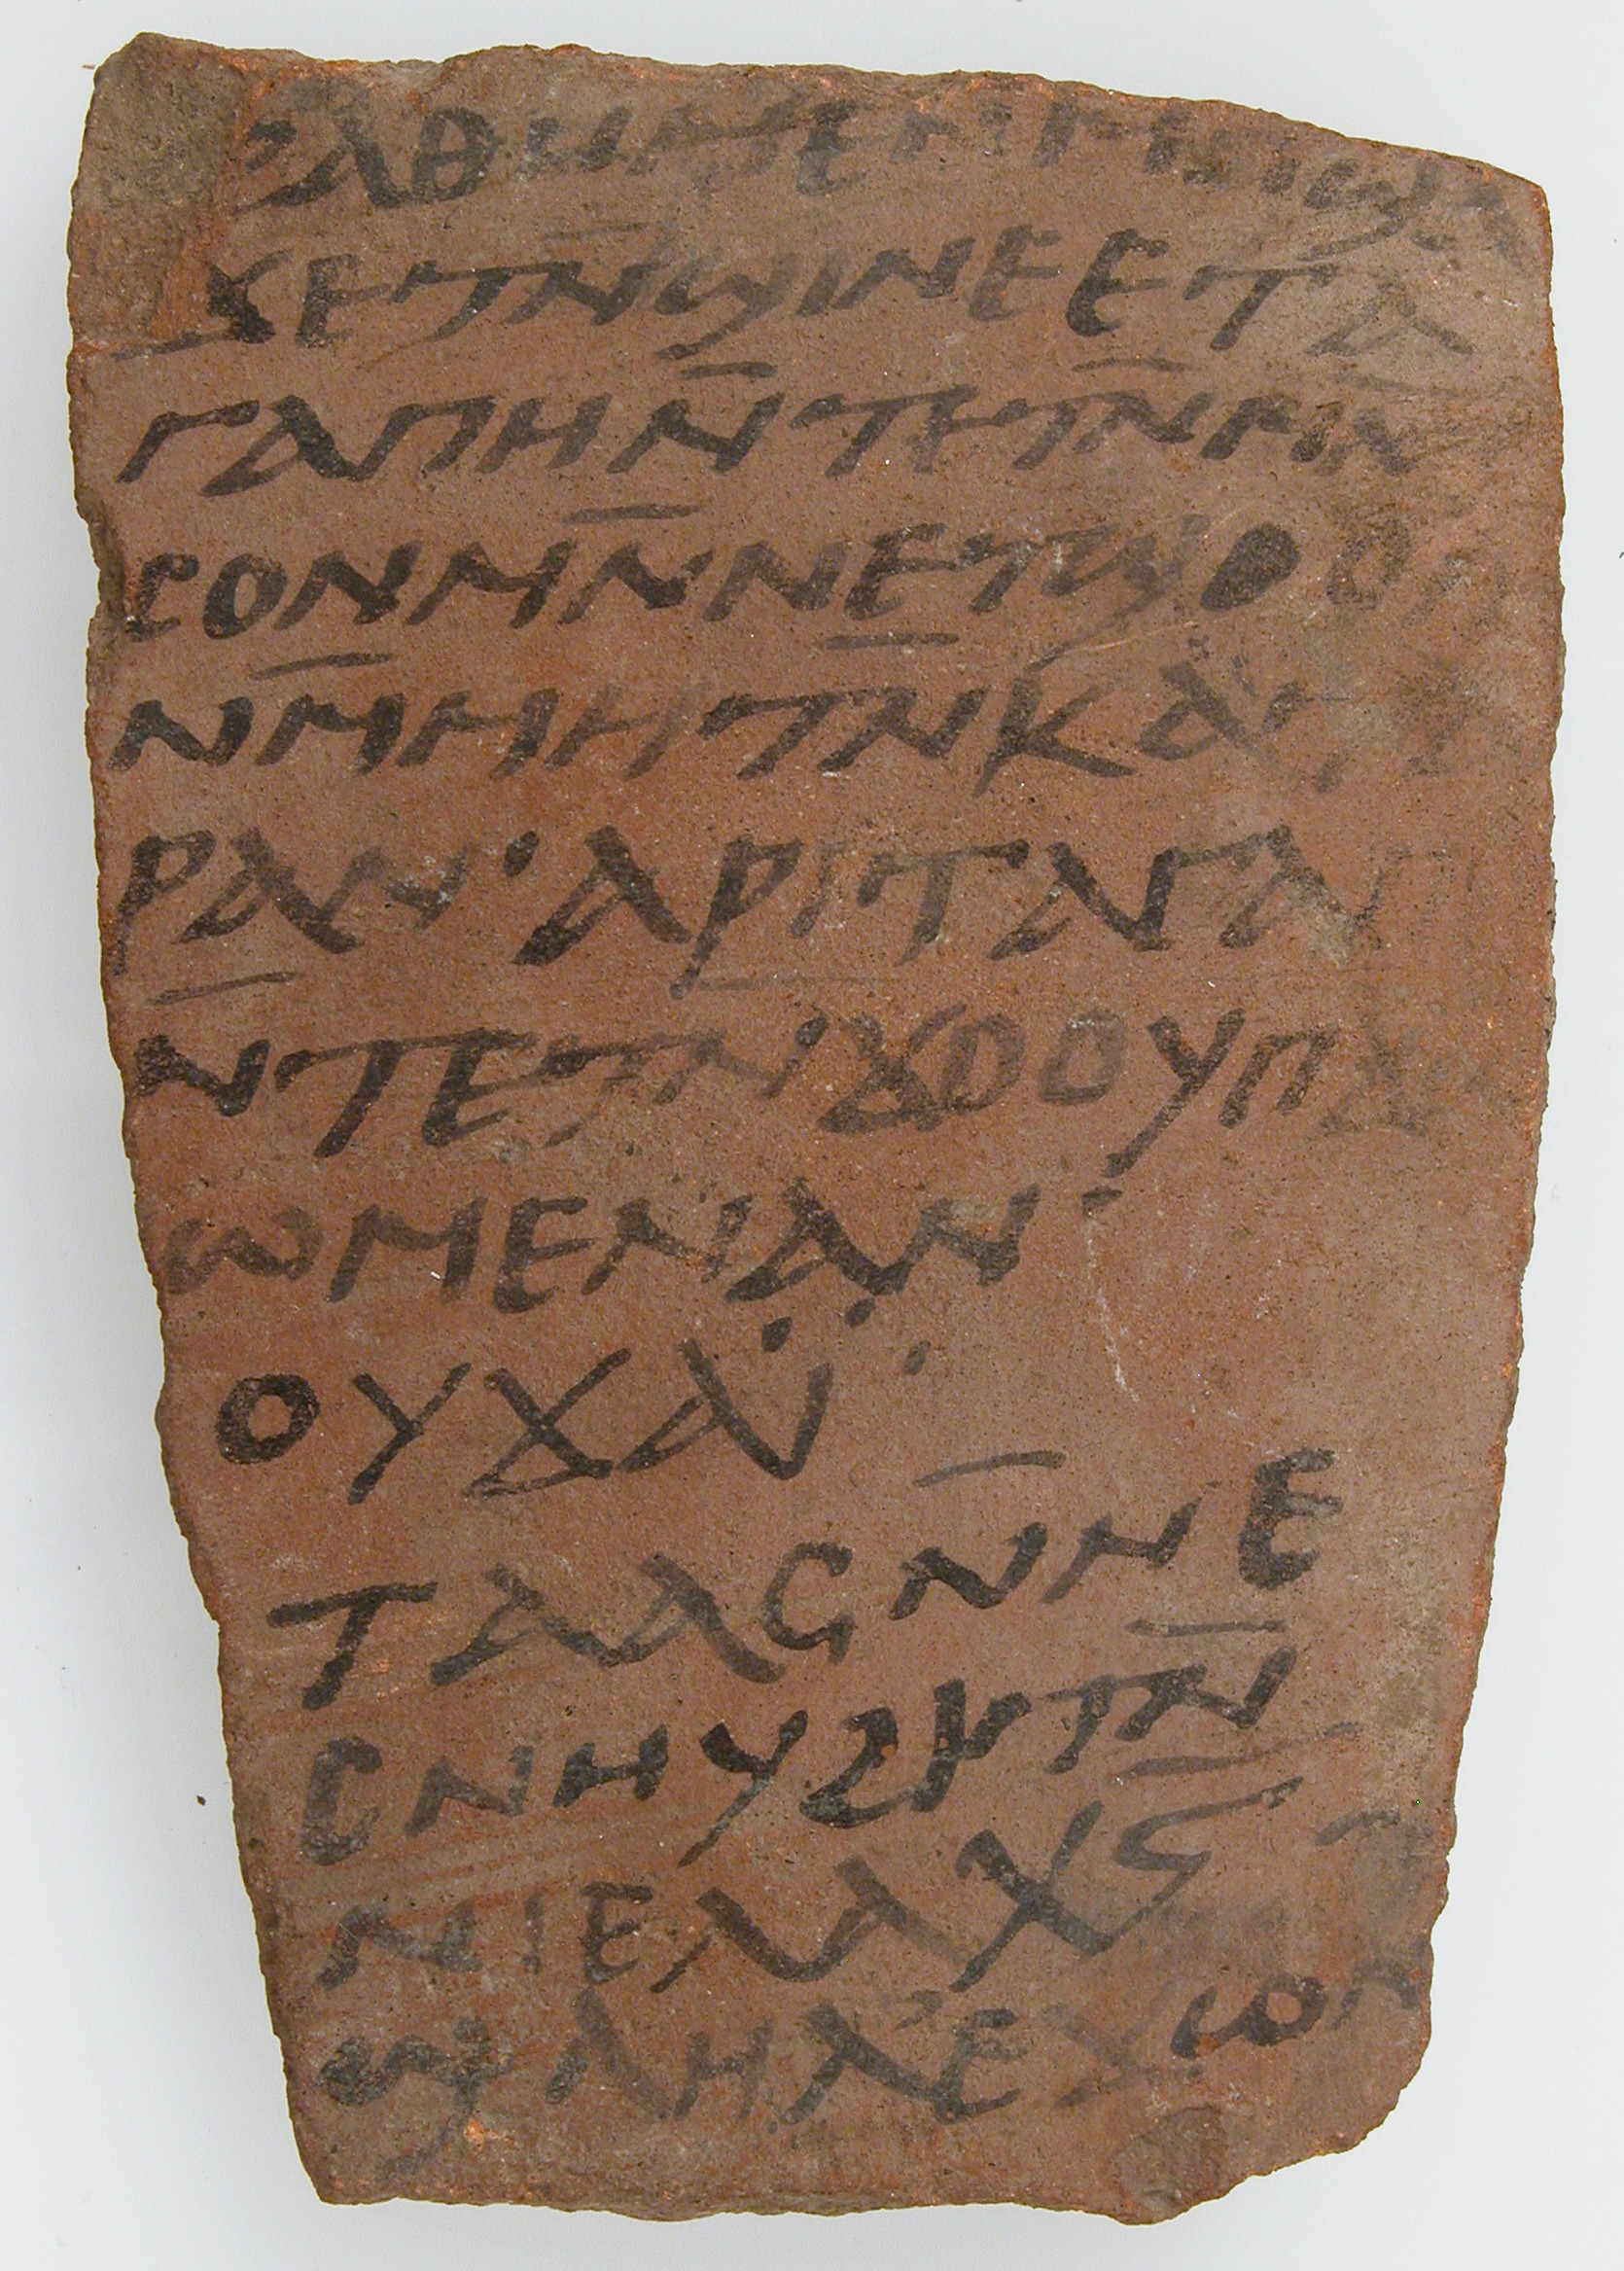 ϩⲁⲑⲏ ⲙⲉⲛ ⲙⲡϣⲁ
ϫⲉ ⲧⲛ̄ϣⲓⲛⲉ ⲉⲧⲁ
ⲅⲁⲡⲏ ⲛ̄ⲧⲏⲧⲛ̄ ⲙⲛ
ⲥⲟⲛ ⲙⲛ̄ ⲛⲉⲧϣⲟⲟⲡ
ⲛⲙ̄ⲙⲏⲧⲛ̄ ⲕⲁⲧⲁ
ⲣⲁⲛ · ⲁⲣⲓ ⲧⲁⲅⲁⲡⲏ
ⲛ̄ⲧⲉⲧⲛ̄ϫⲟⲟⲩ ⲡϫ
ⲱⲙⲉ ⲛⲁⲛ ·
ⲟⲩϫⲁⲓ̈ ·
ⲧⲁⲁⲥ ⲛ̄ⲛⲉ
ⲥⲛⲏⲩ ϩⲓⲧⲛ̄
ⲛⲓⲉⲗⲁⲭⲥ
ϣⲗⲏⲗ ⲉϫⲱⲛ